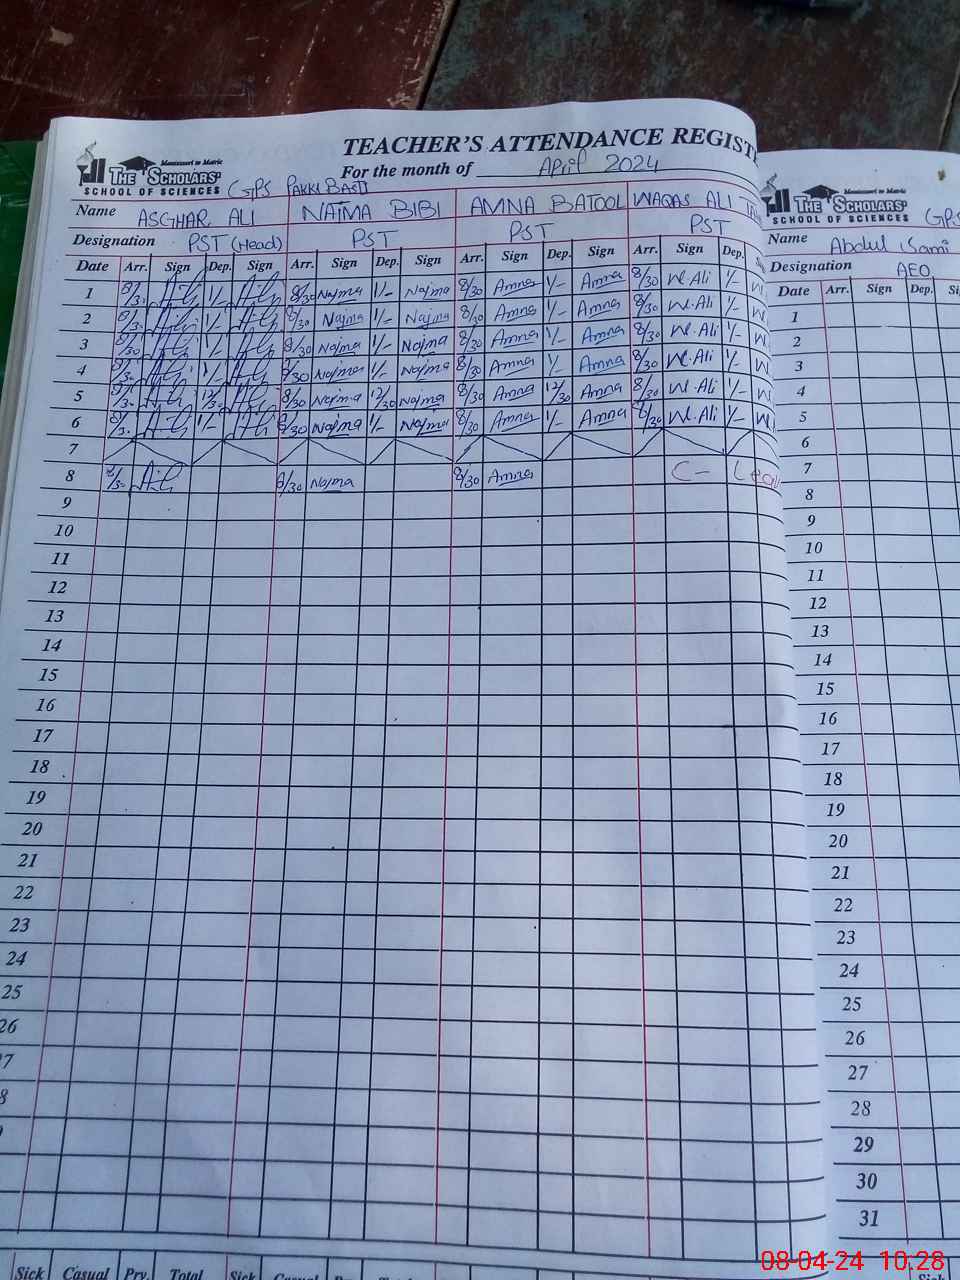 TEACHER'S ATTENDANCE REGIST
For the month of April 2024
Montessori to Matric
THE SCHOLARS'
SCHOOL OF SCIENCES
GPS PAKKI BASTI
Name ASGHAR ALI NAJMA BIBI AMNA BATOOL WAQAS ALI
Designation PST (Head) PST PST PST
Date Arr. Sign Dep. Sign Arr. Sign Dep. Sign Arr. Sign Dep. Sign Arr. Sign Dep.
1 8/30 1/- 8/30 Najma 1/- Najma 8/30 Amna 1/- Amna 8/30 W.Ali 1/- W.
2 8/30 1/- 8/30 Najma 1/- Najma 8/30 Amna 1/- Amna 8/30 W.Ali 1/- W.
3 8/30 1/- 8/30 Najma 1/- Najma 8/30 Amna 1/- Amna 8/30 W.Ali 1/- W.
4 8/30 1/- 8/30 Najma 1/- Najma 8/30 Amna 1/- Amna 8/30 W.Ali 1/- W.
5 8/30 12/30 8/30 Najma 12/30 Najma 8/30 Amna 12/30 Amna 8/30 W.Ali 1/- W.
6 8/30 1/- 8/30 Najma 1/- Najma 8/30 Amna 1/- Amna 8/30 W.Ali 1/- W.
7
8 8/30 8/30 Najma 8/30 Amna C- Lea
9
10
11
12
13
14
15
16
17
18
19
20
21
22
23
24
25
26
7
8
Sick Casual Prv. Total Sick Casual
Montessori to Matric
THE SCHOLARS'
SCHOOL OF SCIENCES
GPS
Name Abdul Sami
Designation AEO
Date Arr. Sign Dep. Si
1
2
3
4
5
6
7
8
9
10
11
12
13
14
15
16
17
18
19
20
21
22
23
24
25
26
27
28
29
30
31
08-04-24 10:28